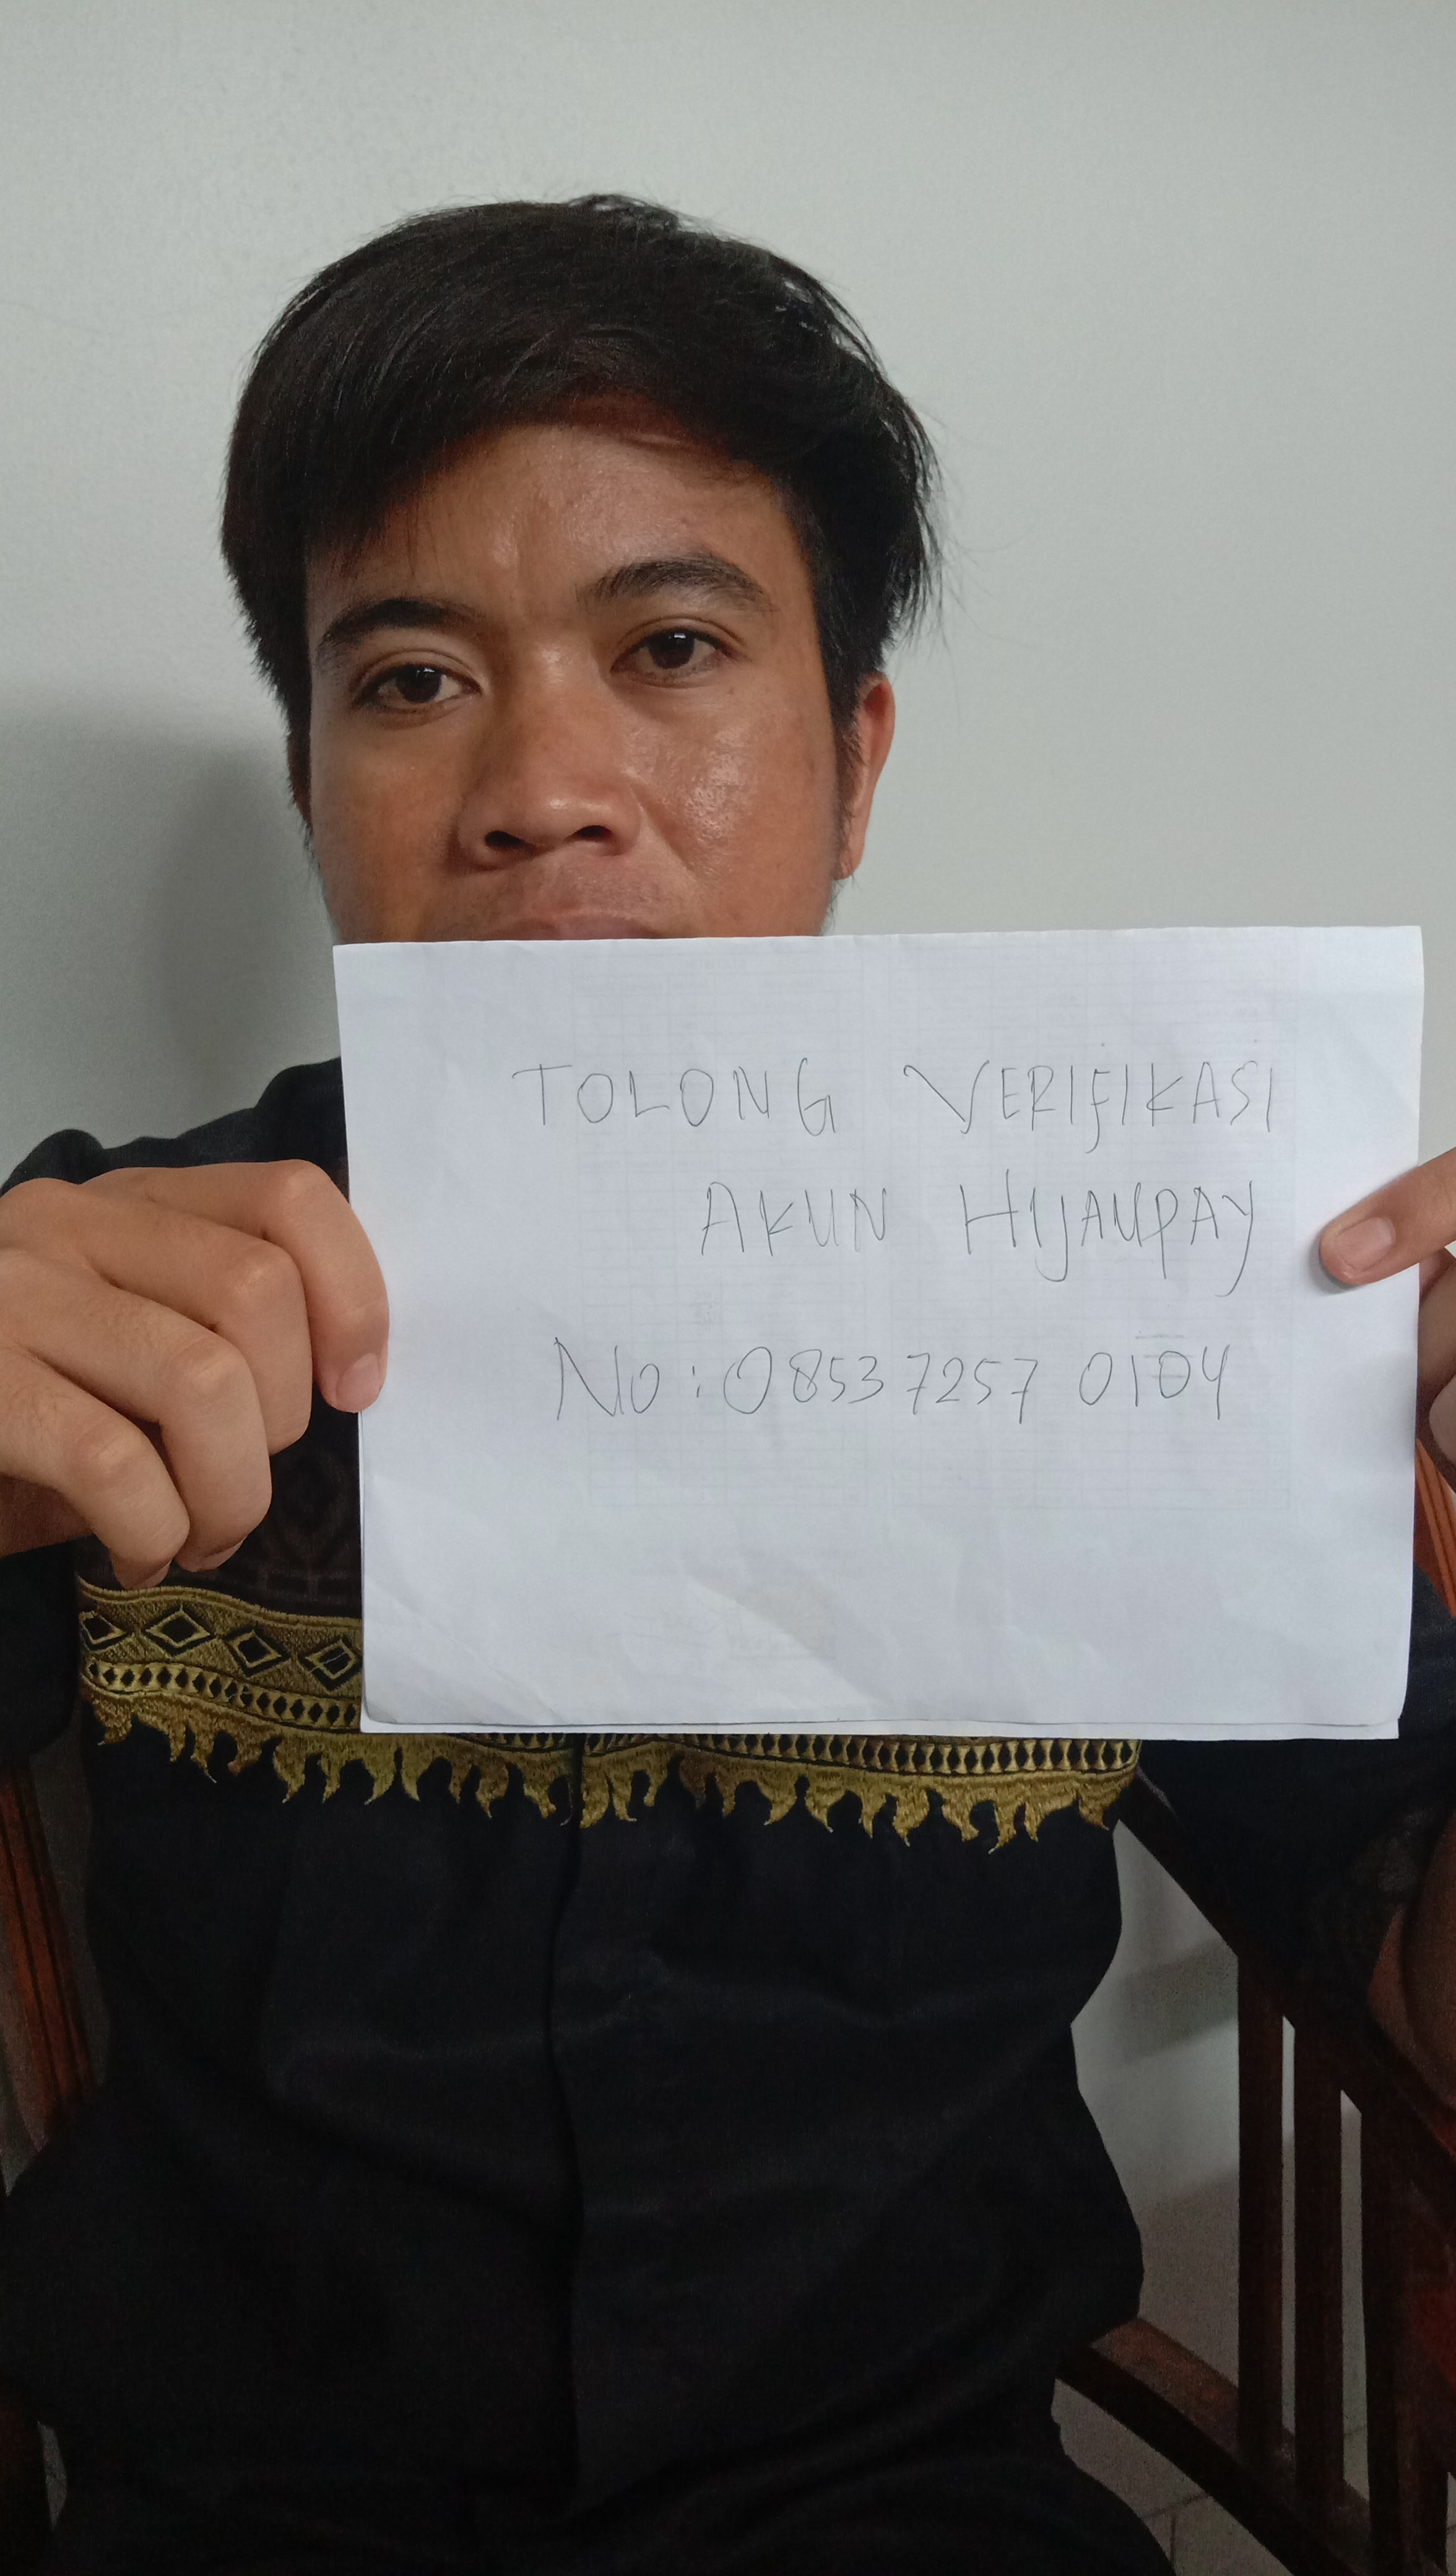 TOLONG VERIFIKASI
AKUN HIJAUPAY
No : 0853 7257 0104